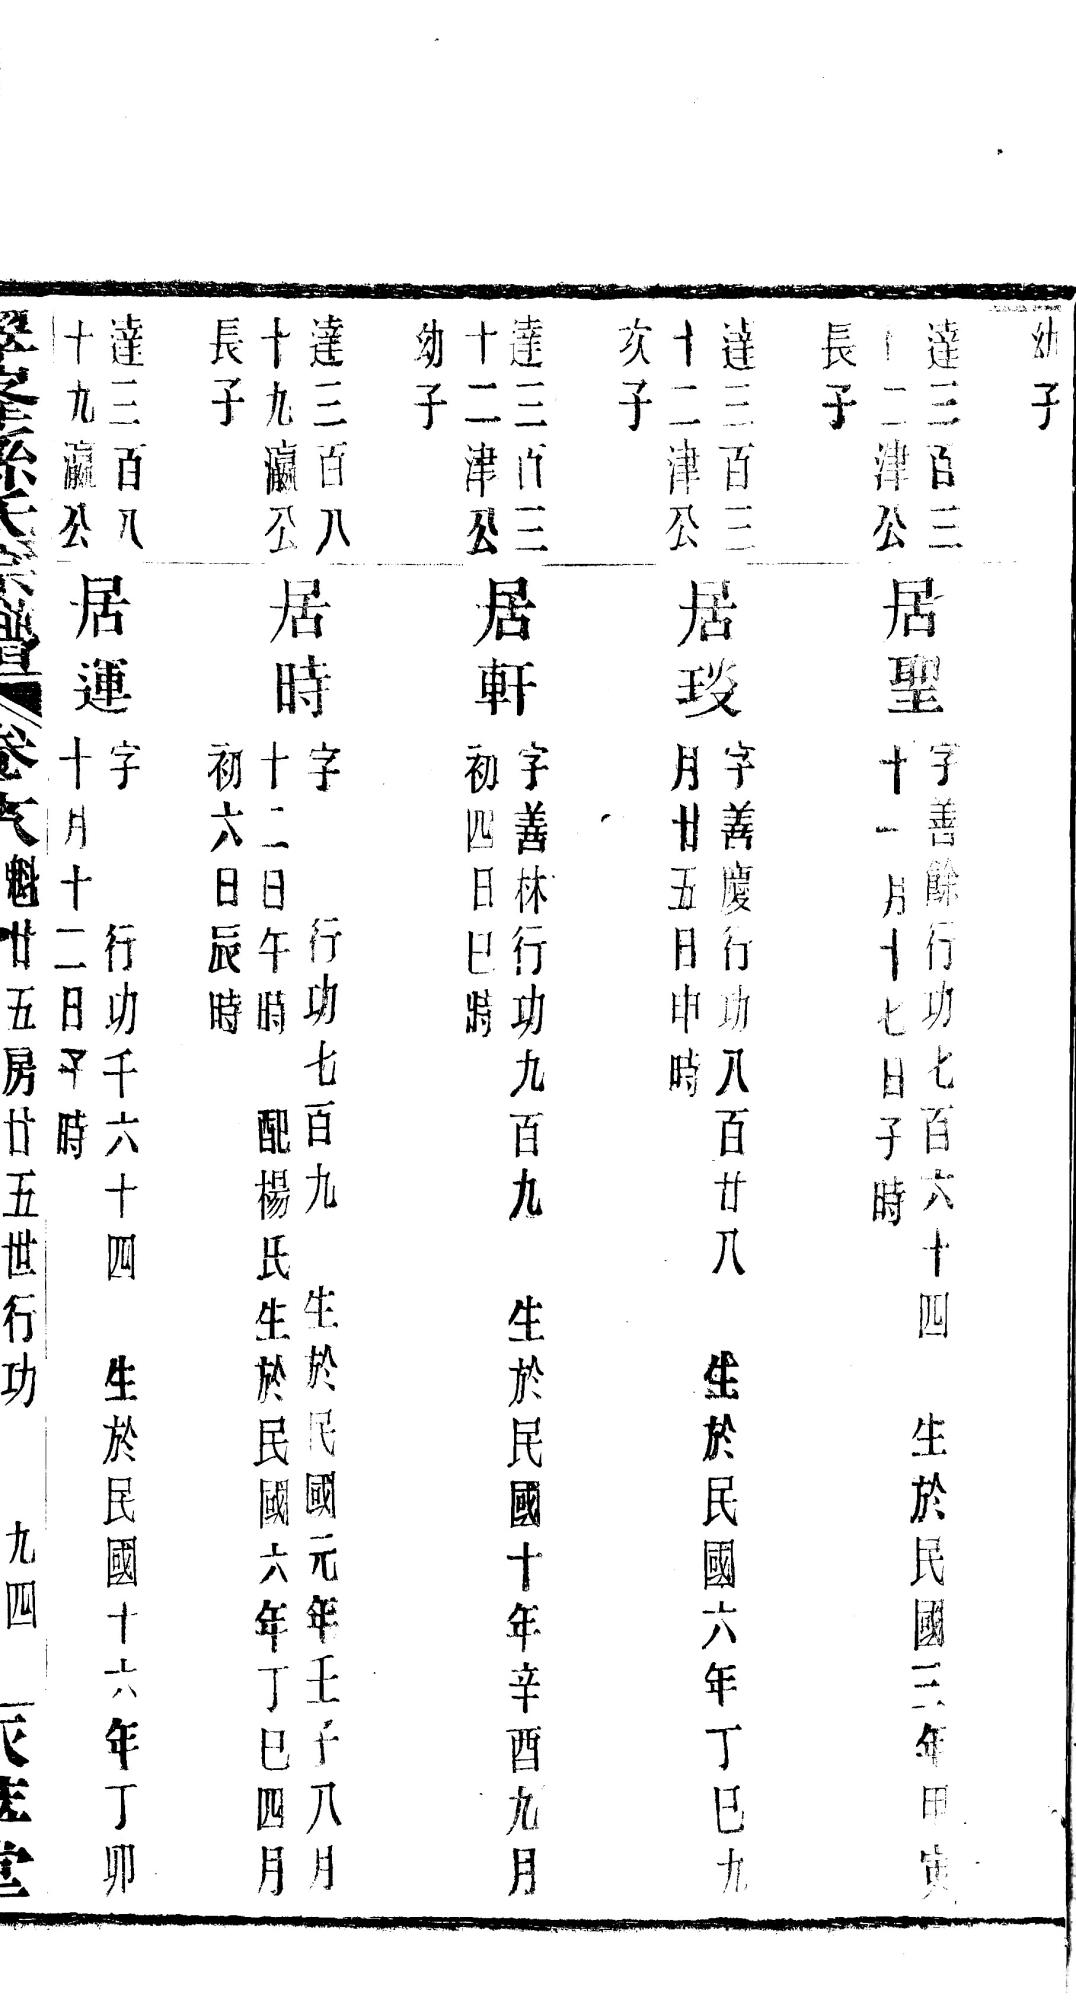 幼子
達三百三
十二津公
長子
居聖
字善餘行功七百六十四　生於民國三年甲寅
十一月十七日子時
達三百三
十二津公
次子
居琰
字善慶行功八百廿八　生於民國六年丁巳九
月廿五日申時
達三百三
十二津公
幼子
居軒
字善林行功九百九　生於民國十年辛酉九月
初四日巳時
達三百八
十九瀛公
長子
居時
字　行功七百九　生於民國元年壬子八月
十二日午時　配楊氏生於民國六年丁巳四月
初六日辰時
達三百八
十九瀛公
居運
字　行功千六十四　生於民國十六年丁卯
十月十二日子時
孫氏宗譜　卷六　魁廿五房廿五世行功　九四　堂